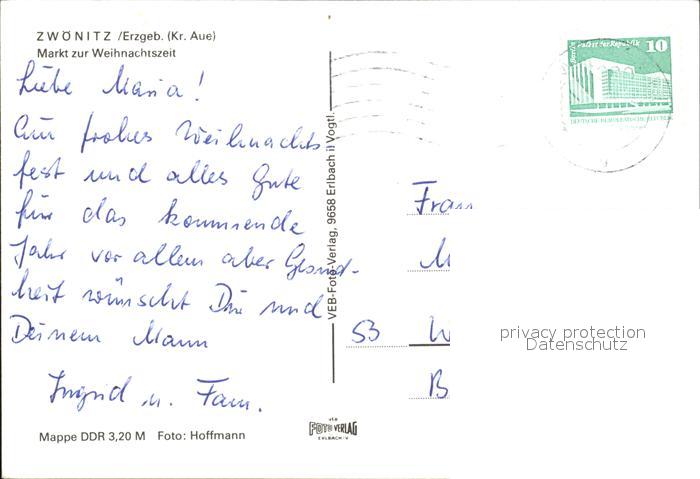 ZWÖNITZ /Erzgeb. (Kr. Aue)
Markt zur Weihnachtszeit
Liebe Maria!
Ein frohes Weihnachts
fest und alles Gute
für das kommende
Jahr vor allem aber Gesund-
heit wünscht Dir und
Deinem Mann
Ingrid u. Fam.
Mappe DDR 3,20 M Foto: Hoffmann
VEB-Foto-Verlag, 9658 Erlbach i. Vogtl.
VEB
FOTO VERLAG
ERLBACH/V.
Berlin Palast der Republik 10
DEUTSCHE DEMOKRATISCHE REPUBLIK
Frau
M
53 W
B
privacy protection
Datenschutz